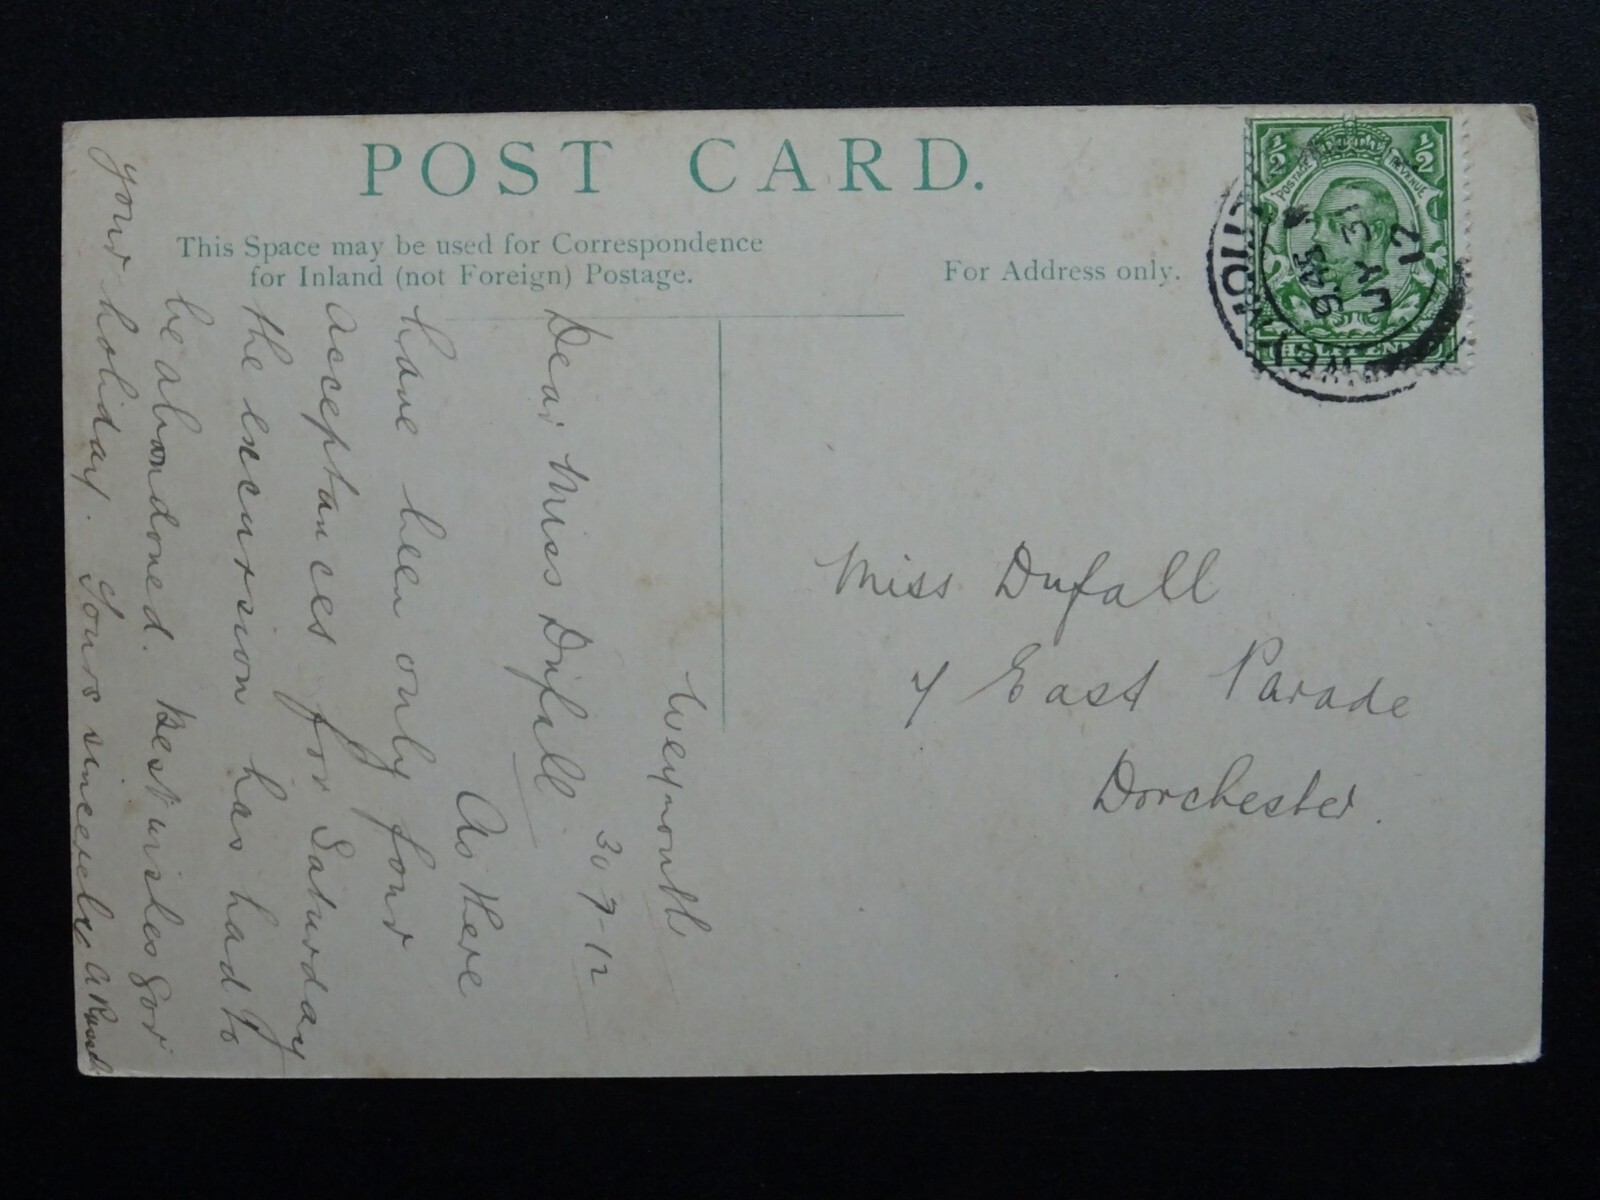 POST CARD.
This Space may be used for Correspondence
for Inland (not Foreign) Postage.
For Address only.
½ ½
POSTAGE REVENUE
9.45
MY 31
12
Miss Dufall
7 East Parade
Dorchester.
Weymouth
Dear Miss Dufall
As there
have been only four
acceptances for Saturday
the excursion has had to
be abandoned. Best wishes for
your holiday. Yours sincerely